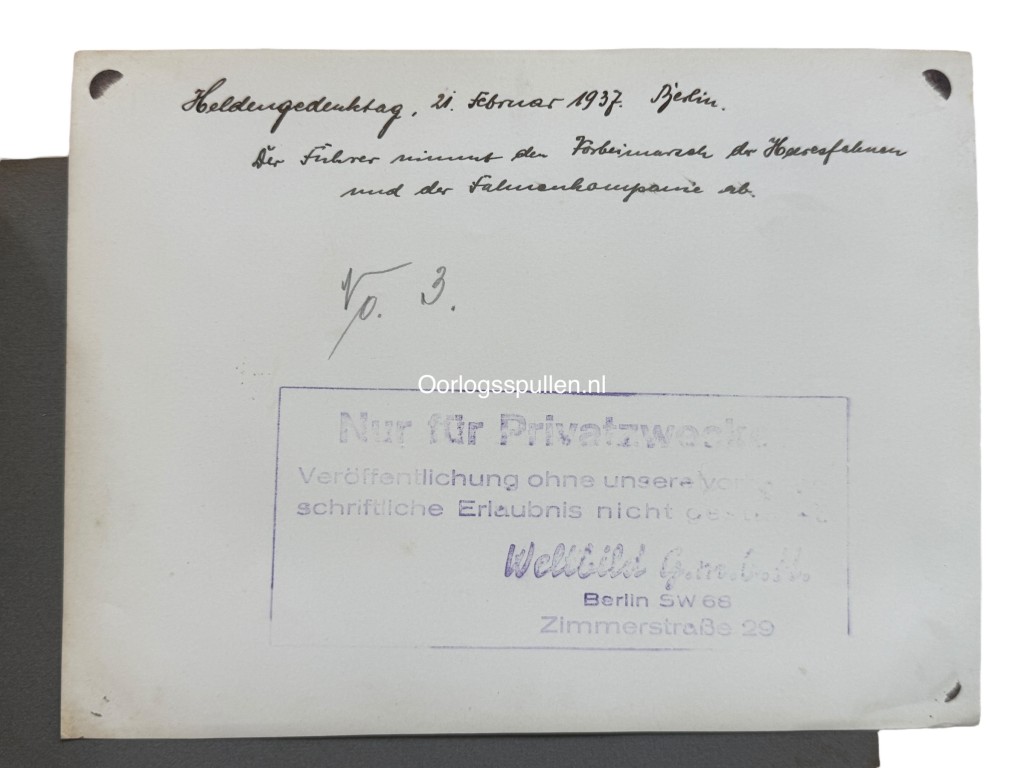 Heldengedenktag, 21. Februar 1937. Berlin.
Der Führer nimmt den Vorbeimarsch der Heeresfahnen
und der Fahnenkompanie ab.
No. 3.
Oorlogsspullen.nl
Nur für Privatzwecke
Veröffentlichung ohne unsere
schriftliche Erlaubnis nicht
Weltbild G.m.b.H.
Berlin SW 68
Zimmerstraße 29